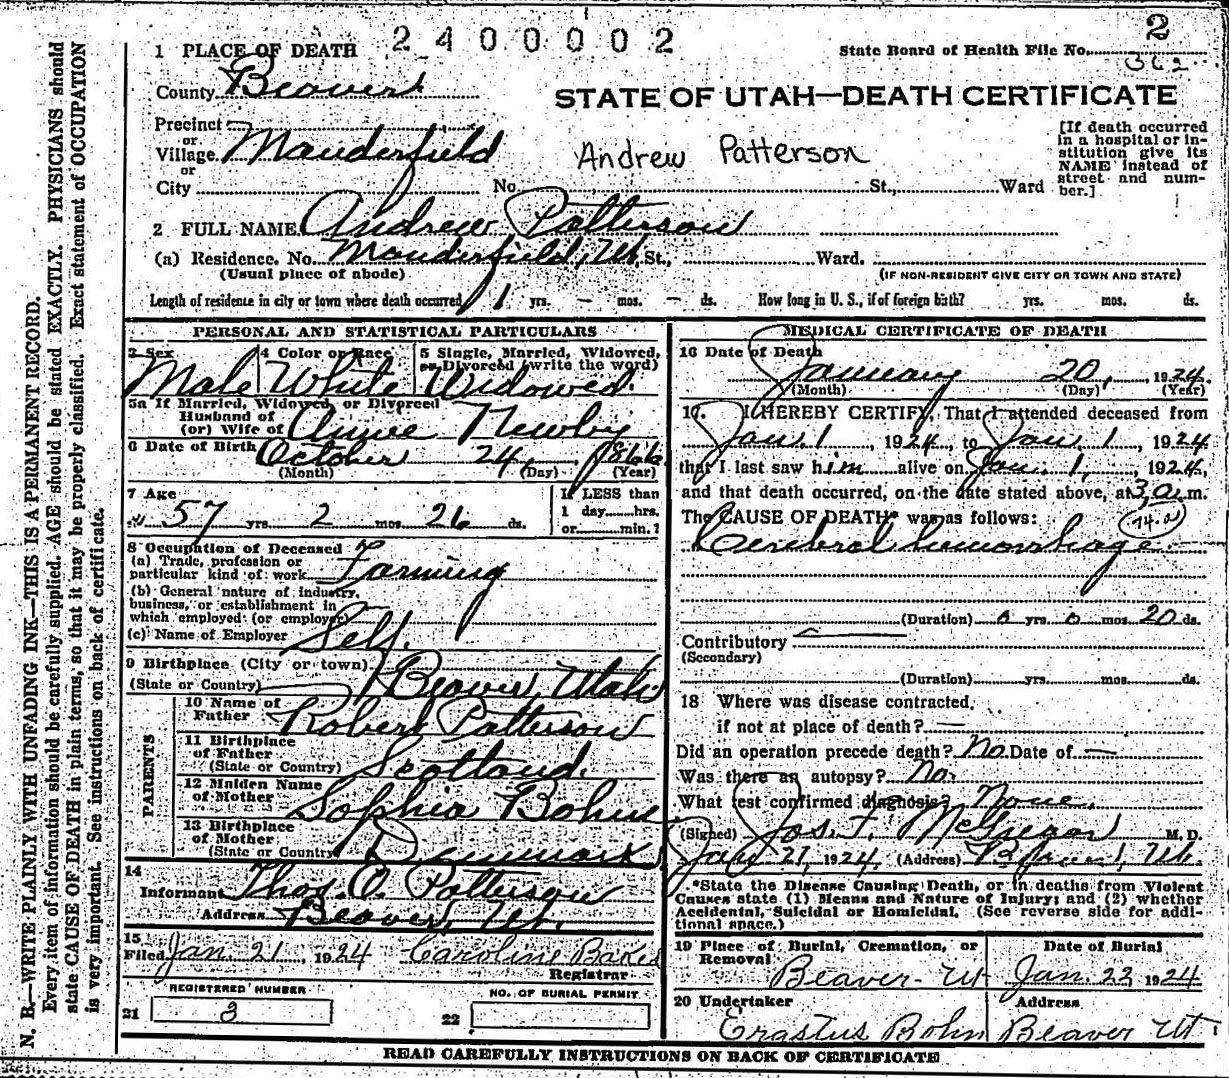 2400002
2
State Board of Health File No.
362
1 PLACE OF DEATH
County Beaver
STATE OF UTAH—DEATH CERTIFICATE
Precinct
or
Village Manderfield
or
City No. St., Ward
Andrew Patterson
[If death occurred
in a hospital or in-
stitution give its
NAME instead of
street and num-
ber.]
2 FULL NAME Andrew Patterson
(a) Residence. No. Manderfield, Ut. St., Ward.
(Usual place of abode) (IF NON-RESIDENT GIVE CITY OR TOWN AND STATE)
Length of residence in city or town where death occurred 1 yrs. — mos. — ds. How long in U. S., if of foreign birth? yrs. mos. ds.
PERSONAL AND STATISTICAL PARTICULARS
3 Sex Male
4 Color or Race White
5 Single, Married, Widowed,
or Divorced (write the word)
Widowed.
5a If Married, Widowed, or Divorced
Husband of
(or) Wife of Annie Newby
6 Date of Birth October 24, 1866
(Month) (Day) (Year)
7 Age
57 yrs. 2 mos. 26 ds.
If LESS than
1 day......hrs.
or......min.?
8 Occupation of Deceased
(a) Trade, profession or
particular kind of work Farming
(b) General nature of industry,
business, or establishment in
which employed (or employer)
(c) Name of Employer Self.
9 Birthplace (City or town)
(State or Country) Beaver, Utah
PARENTS
10 Name of
Father Robert Patterson
11 Birthplace
of Father
(State or Country) Scotland.
12 Maiden Name
of Mother Sophia Bohn
13 Birthplace
of Mother
(State or Country) Denmark
14
Informant Thos. O. Patterson
Address Beaver, Ut.
15
Filed Jan. 21, 1924 Caroline Baker
Registrar
REGISTERED NUMBER
21 3
NO. OF BURIAL PERMIT
22
MEDICAL CERTIFICATE OF DEATH
16 Date of Death
January 20, 1924.
(Month) (Day) (Year)
17. I HEREBY CERTIFY, That I attended deceased from
Jan. 1, 1924, to Jan. 1, 1924
that I last saw him alive on Jan. 1, 1924,
and that death occurred, on the date stated above, at 3 a.m.
The CAUSE OF DEATH* was as follows:
Cerebral hemorrhage.
(Duration) 0 yrs. 0 mos. 20 ds.
Contributory —
(Secondary)
(Duration) yrs. mos. ds.
18 Where was disease contracted,
if not at place of death? —
Did an operation precede death? No. Date of —
Was there an autopsy? No.
What test confirmed diagnosis? None.
(Signed) Jos. T. McGregor M. D.
Jan 21, 1924. (Address) Beaver, Ut.
*State the Disease Causing Death, or in deaths from Violent
Causes state (1) Means and Nature of Injury; and (2) whether
Accidental, Suicidal or Homicidal. (See reverse side for addi-
tional space.)
19 Place of Burial, Cremation, or
Removal
Beaver - Ut
Date of Burial
Jan. 22, 1924
20 Undertaker
Erastus Bohn
Address
Beaver Ut.
READ CAREFULLY INSTRUCTIONS ON BACK OF CERTIFICATE
N. B.—WRITE PLAINLY WITH UNFADING INK—THIS IS A PERMANENT RECORD.
Every item of information should be carefully supplied. AGE should be stated EXACTLY. PHYSICIANS should
state CAUSE OF DEATH in plain terms, so that it may be properly classified. Exact statement of OCCUPATION
is very important. See instructions on back of certificate.